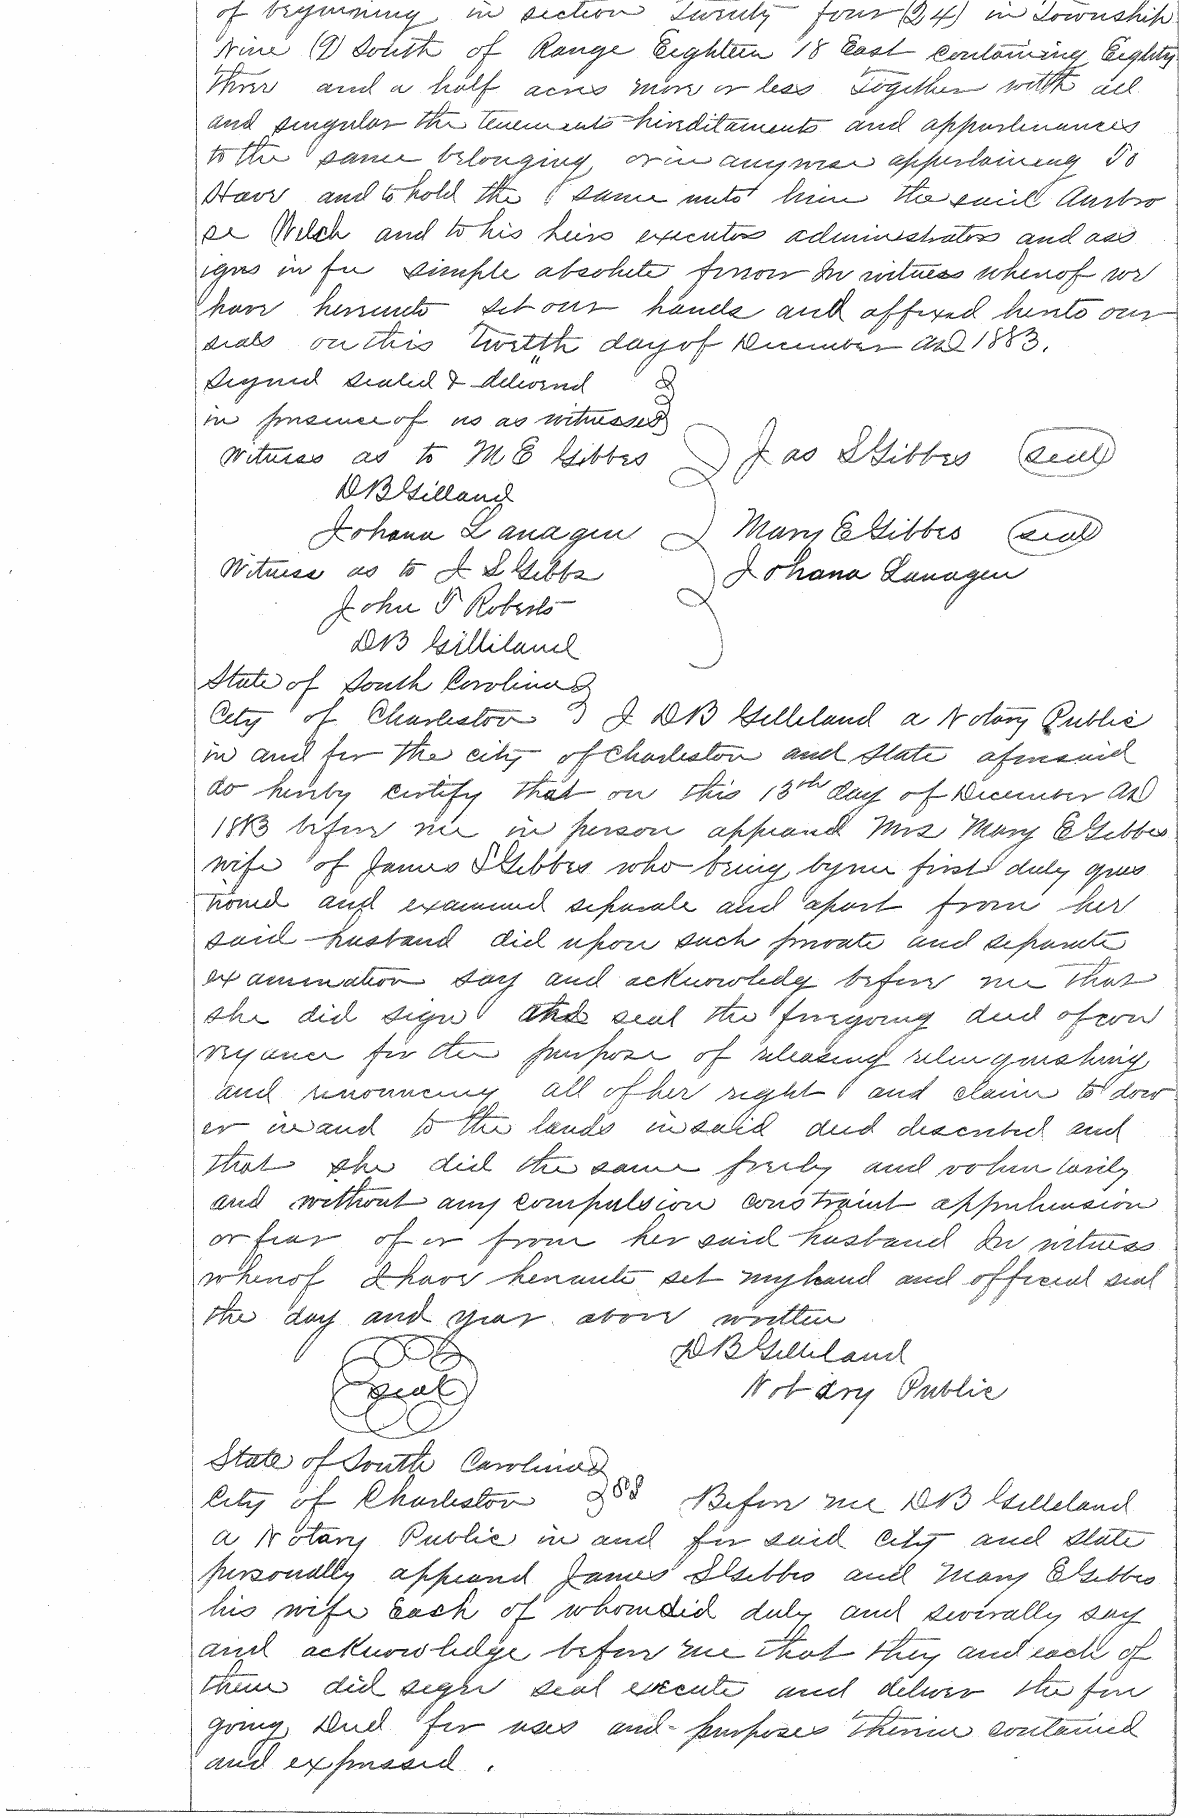 of beginning in section Twenty four (24) in Township
Nine (9) South of Range Eighteen 18 East containing Eighty
three and a half acres more or less Together with all
and singular the tenements hereditaments and appurtenances
to the same belonging or in anywise appertaining To
Have and to hold the same unto him the said Ambro
se Welch and to his heirs executors administrators and ass
igns in fee simple absolute forever In witness whereof we
have hereunto set our hands and affixed hereto our
seals on this Twelth day of December AD 1883.
Signed sealed & delivered
in presence of us as witnesses
Witness as to M E Gibbes Jas S Gibbes seal
D B Gilland
Johana Lanagen Mary E Gibbes seal
Witness as to J S Gibbs Johana Lanagen
John T Roberts
D B Gilliland
State of South Carolina
City of Charleston I D B Gilleland a Notary Public
in and for the city of Charleston and State aforesaid
do hereby certify that on this 13th day of December AD
1883 before me in person appeared Mrs Mary E Gibbes
wife of James S Gibbes who being by me first duly ques
tioned and examined separate and apart from her
said husband did upon such private and separate
examination say and acknowledge before me that
she did sign and seal the foregoing deed of con
veyance for the purpose of releasing relinquishing
and renouncing all of her right and claim to dow
er in and to the lands in said deed described and
that she did the same freely and voluntarily
and without any compulsion constraint apprehension
or fear of or from her said husband In witness
whereof I have hereunto set my hand and official seal
the day and year above written
D B Gilleland
seal Notary Public
State of South Carolina
City of Charleston SS Before me D B Gilleland
a Notary Public in and for said City and State
personally appeared James S Gibbes and Mary E Gibbes
his wife Each of whom did duly and severally say
and acknowledge before me that they and each of
them did sign seal execute and deliver the fore
going Deed for uses and purposes therein contained
and expressed .